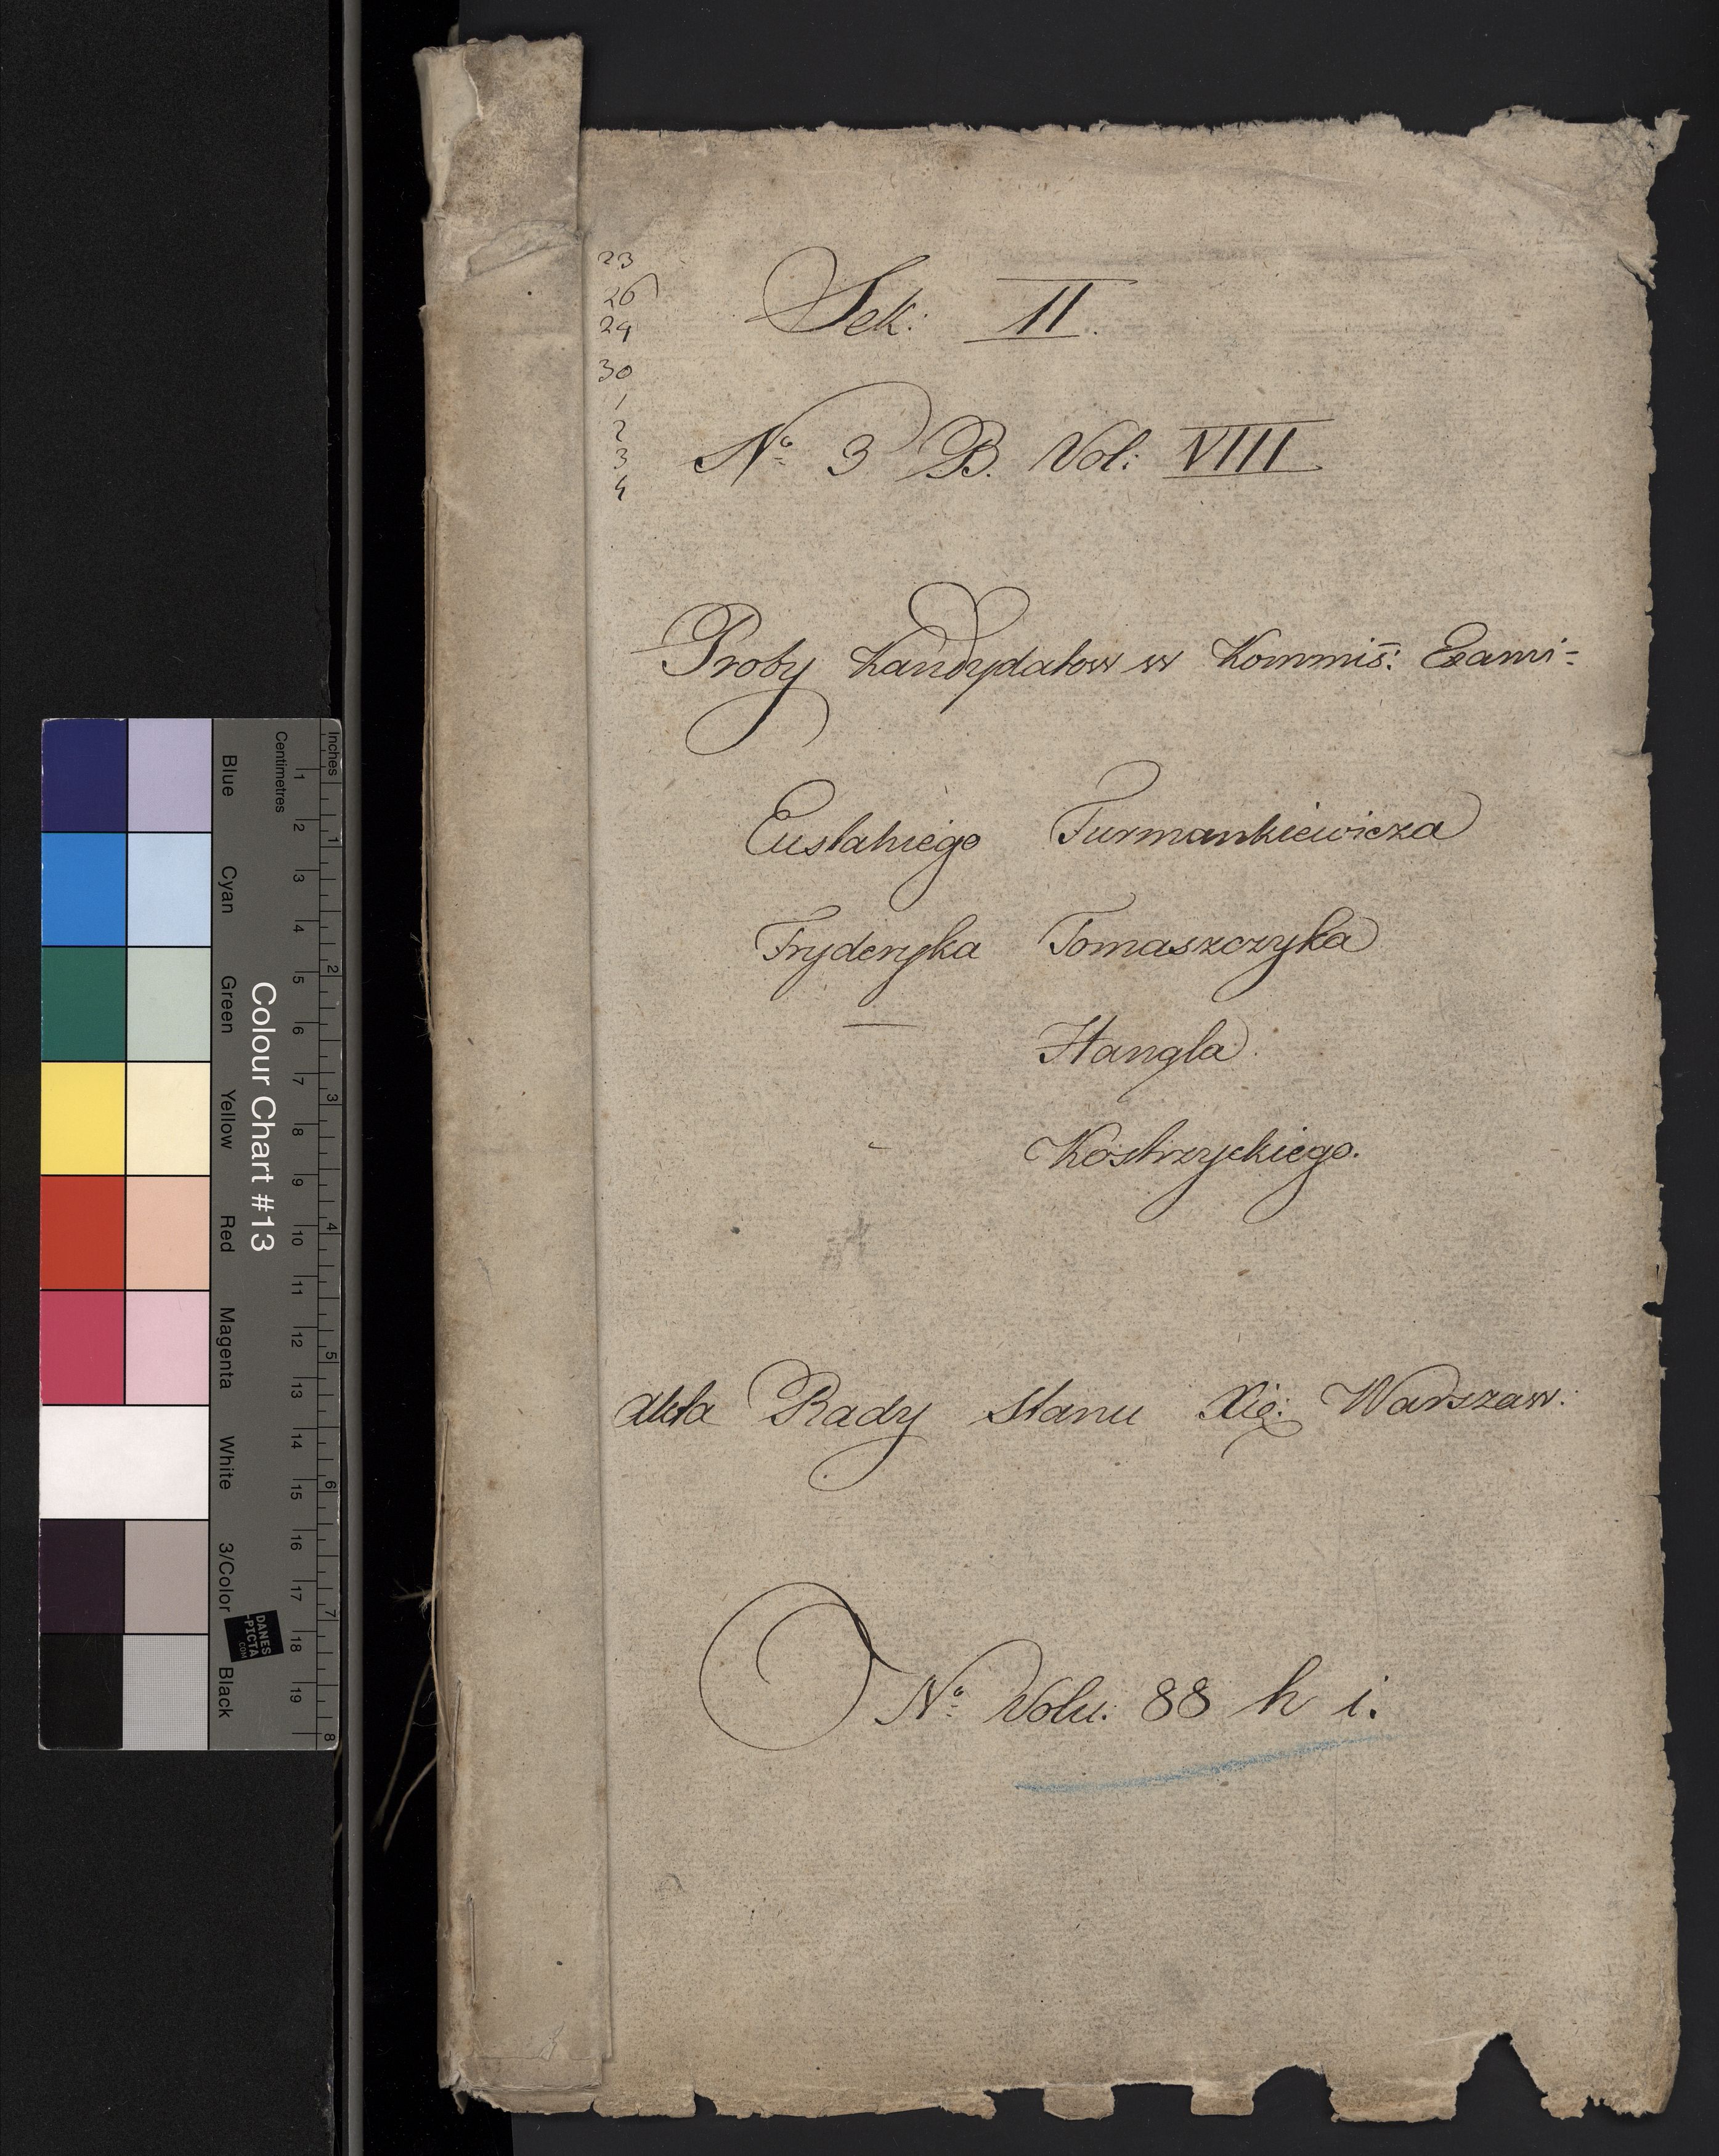 23
26
29
30
1
2
3
4
Sek: II.
No 3 B. Vol: VIII
Proby Kandydatow w Kommis: Exami-
Eustahiego Furmankiewicza
Fryderyka Tomaszczyka
— Hangla.
- Kostrzyckiego.
Akta Rady Stanu Xię: Warszaw:
No Volu: 88 h i.
Colour Chart #13
Blue Cyan Green Yellow Red Magenta White 3/Color Black
Inches 1 2 3 4 5 6 7 8
Centimetres 1 2 3 4 5 6 7 8 9 10 11 12 13 14 15 16 17 18 19
DANES
-PICTA
.COM